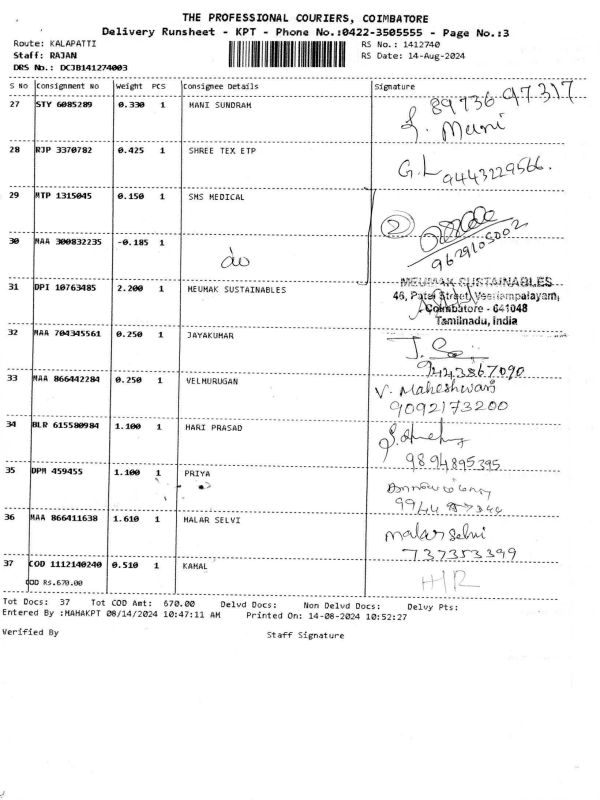 THE PROFESSIONAL COURIERS, COIMBATORE
Delivery Runsheet - KPT - Phone No.:0422-3505555 - Page No.:3
Route: KALAPATTI
RS No.: 1412740
Staff: RAJAN
RS Date: 14-Aug-2024
DRS No.: DCJB141274003
S No Consignment No Weight PCS Consignee Details Signature
27 STY 6085289 0.330 1 MANI SUNDRAM
89736 97317
Mani
28 RJP 3370782 0.425 1 SHREE TEX ETP
G.L 9443229566.
29 MTP 1315045 0.150 1 SMS MEDICAL
2
9629105002
30 MAA 300832235 -0.185 1
31 DPI 10763485 2.200 1 MEUMAK SUSTAINABLES
MEUMAK SUSTAINABLES
46, Patel Street, Veeriampalayam,
Coimbatore - 641048
Tamilnadu, India
32 MAA 704345561 0.250 1 JAYAKUMAR
9443867090
33 MAA 866442284 0.250 1 VELMURUGAN
V. Maheshwari
9092173200
34 BLR 615580984 1.100 1 HARI PRASAD
9894895395
35 DPM 459455 1.100 1 PRIYA
36 MAA 866411638 1.610 1 MALAR SELVI
Malar Selvi
737353399
37 COD 1112140240 0.510 1 KAMAL
COD Rs.670.00
HR
Tot Docs: 37 Tot COD Amt: 670.00 Delvd Docs: Non Delvd Docs: Delvy Pts:
Entered By :MAHAKPT 08/14/2024 10:47:11 AM Printed On: 14-08-2024 10:52:27
Verified By
Staff Signature